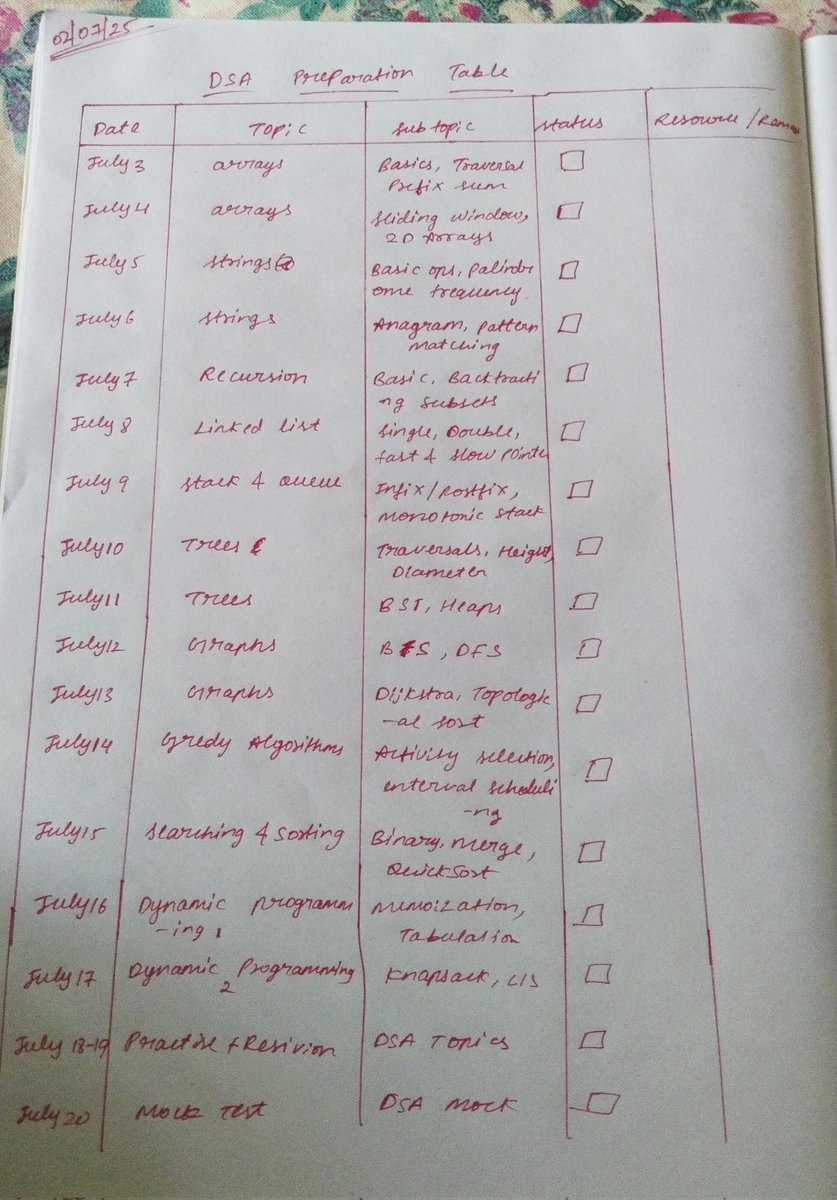 02/07/25
DSA Preparation Table
Date Topic Subtopic Status Resource / Rema
July 3 arrays Basics, Traversal
Prefix sum
July 4 arrays Sliding window,
2D Arrays
July 5 Strings Basic ops, Palindr
ome frequency
July 6 Strings Anagram, pattern
matching
July 7 Recursion Basic, Backtracti
ng subsets
July 8 Linked list Single, Double,
fast & slow pointe
July 9 Stack & Queue Infix/postfix,
monotonic stack
July 10 Trees Traversals, Height,
Diameter
July 11 Trees BST, Heaps
July 12 Graphs BFS, DFS
July 13 Graphs Dijkstra, Topologic
-al sort
July 14 Gredy Algorithms Activity selection,
interval scheduli
-ng
July 15 Searching & Sorting Binary, Merge,
QuickSort
July 16 Dynamic programm Memoization,
-ing 1 Tabulation
July 17 Dynamic Programming Knapsack, LIS
2
July 18-19 Practise + Resivion DSA Topics
July 20 Mock Test DSA Mock